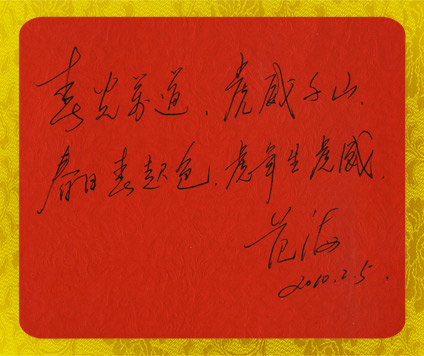 春光万道、虎威千山.
春日春起色.虎年生虎威.
范海
2010.2.5.